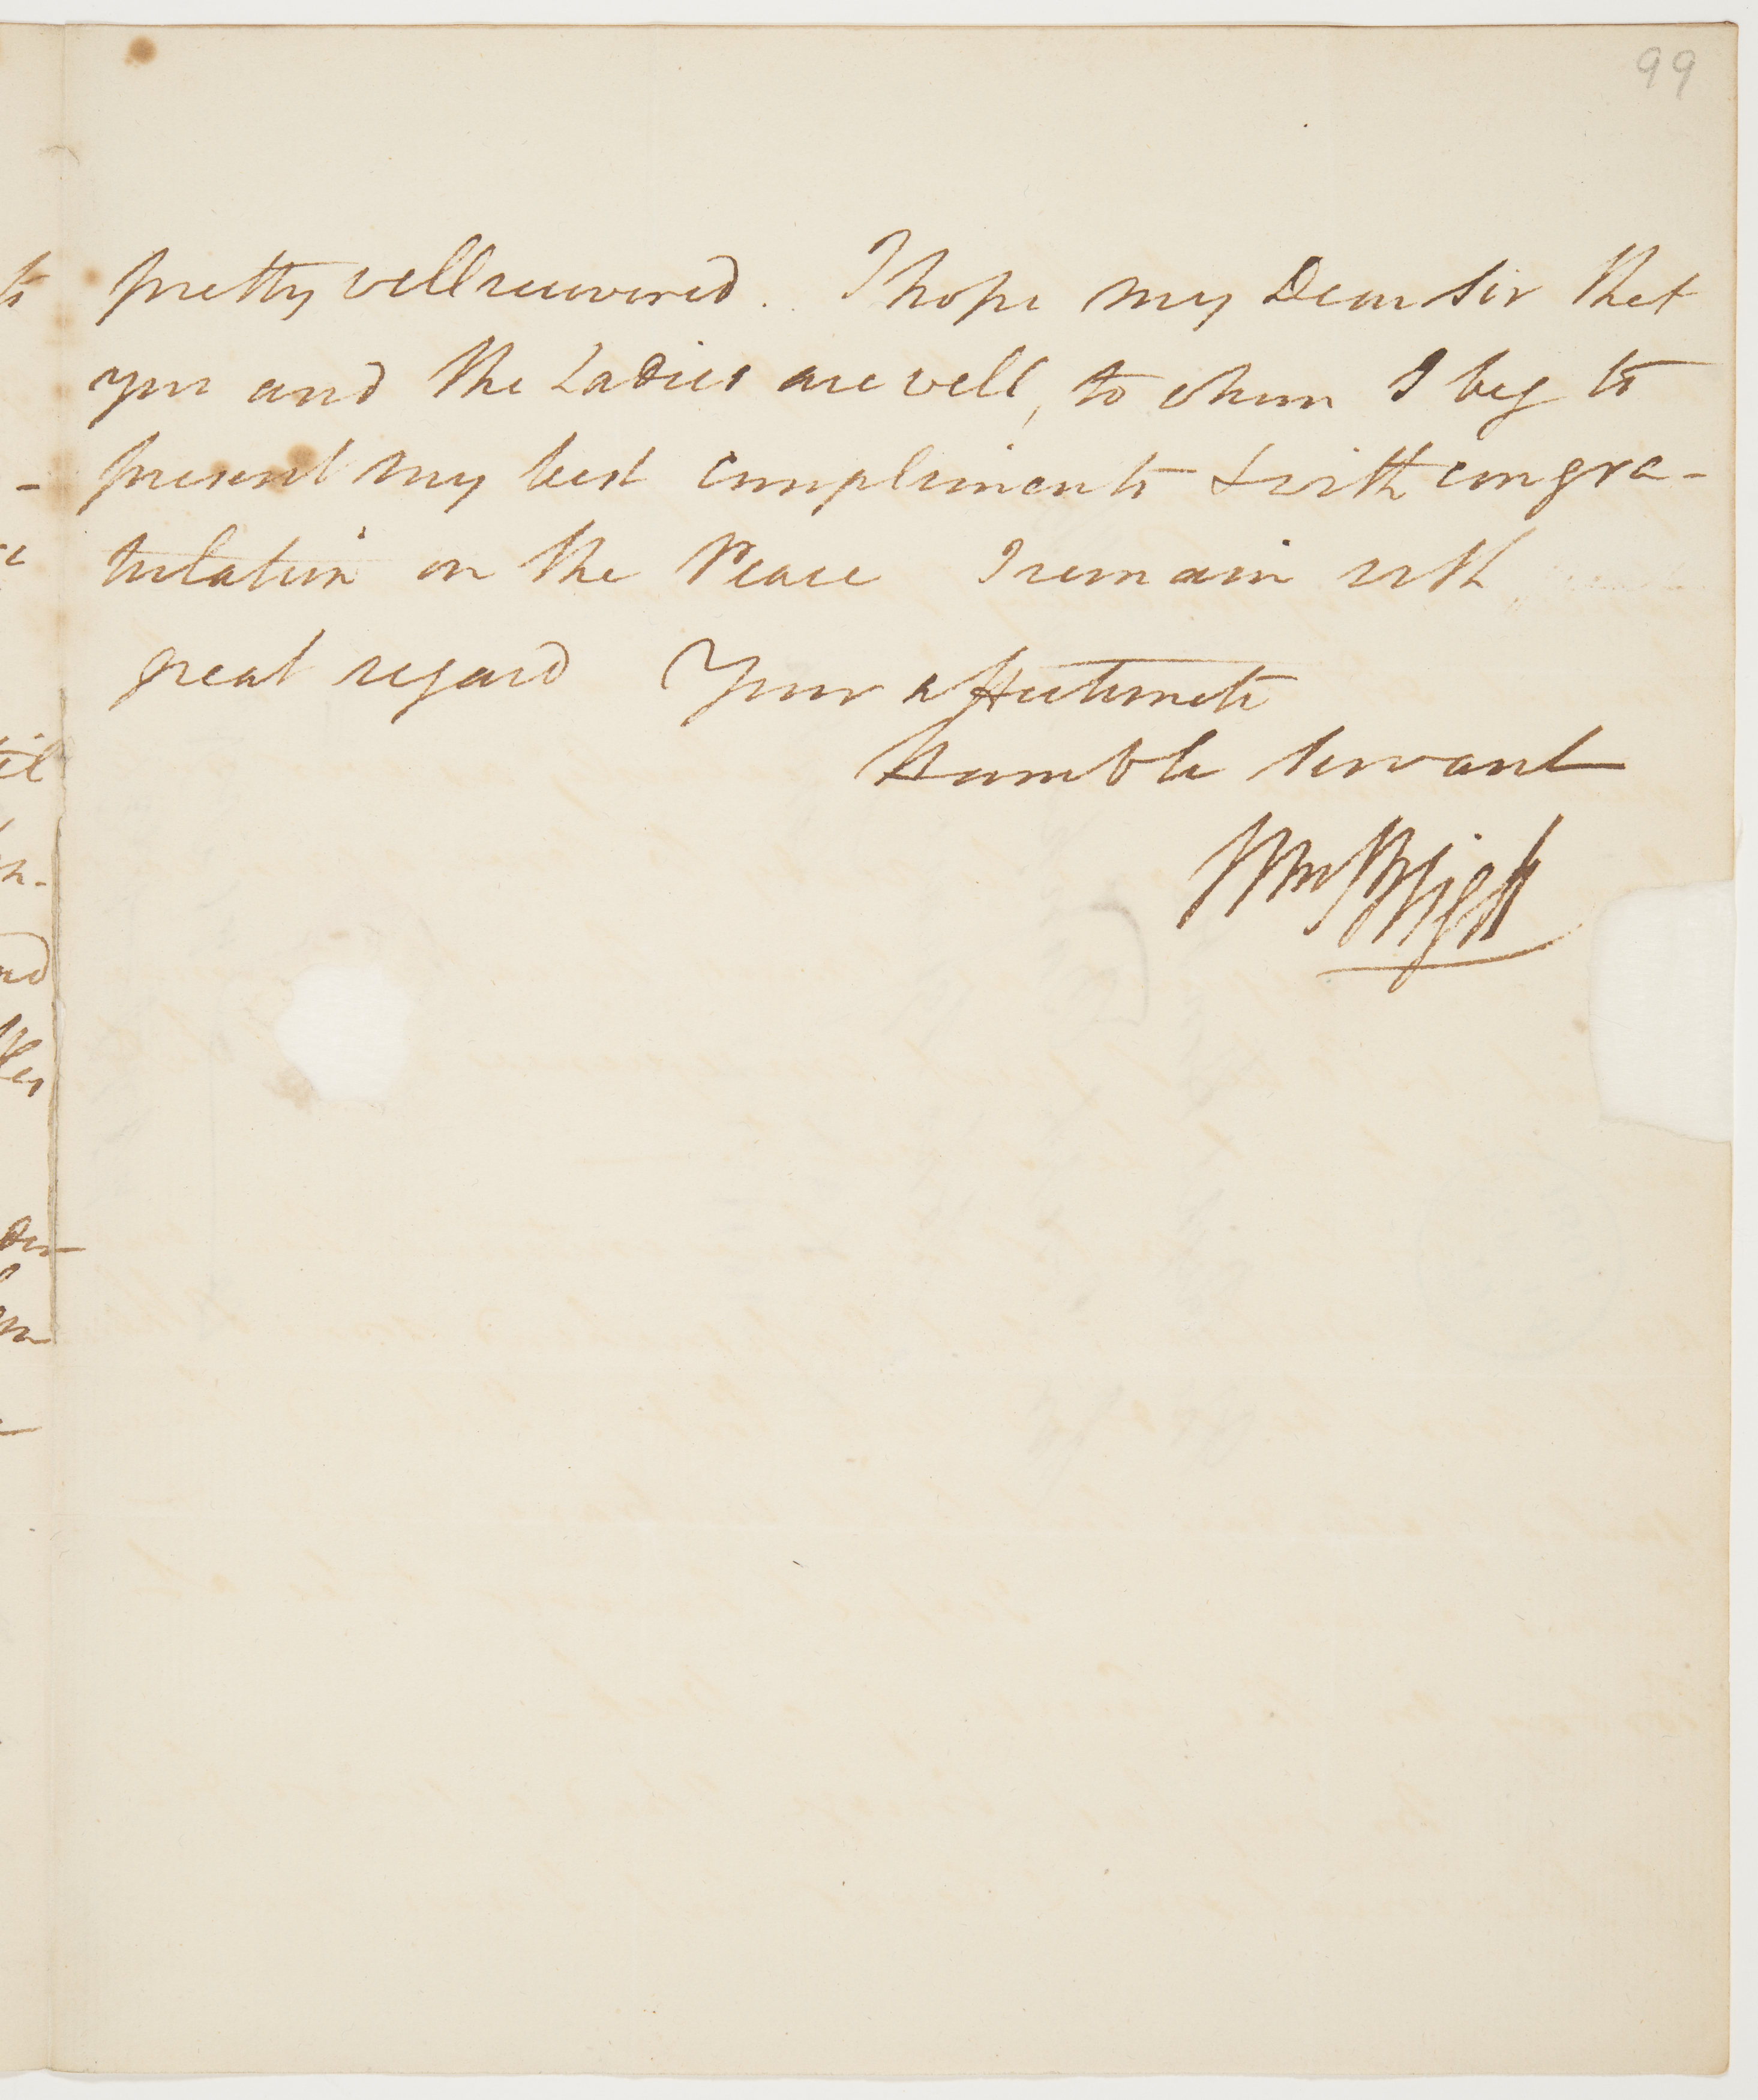 99
pretty well recovered. I hope my Dear Sir that
you and the Ladies are well, to whom I beg to
present my best compliments & with congra-
tulation on the Peace I remain with
great regard Your affectionate
Humble Servant
Wm Bligh